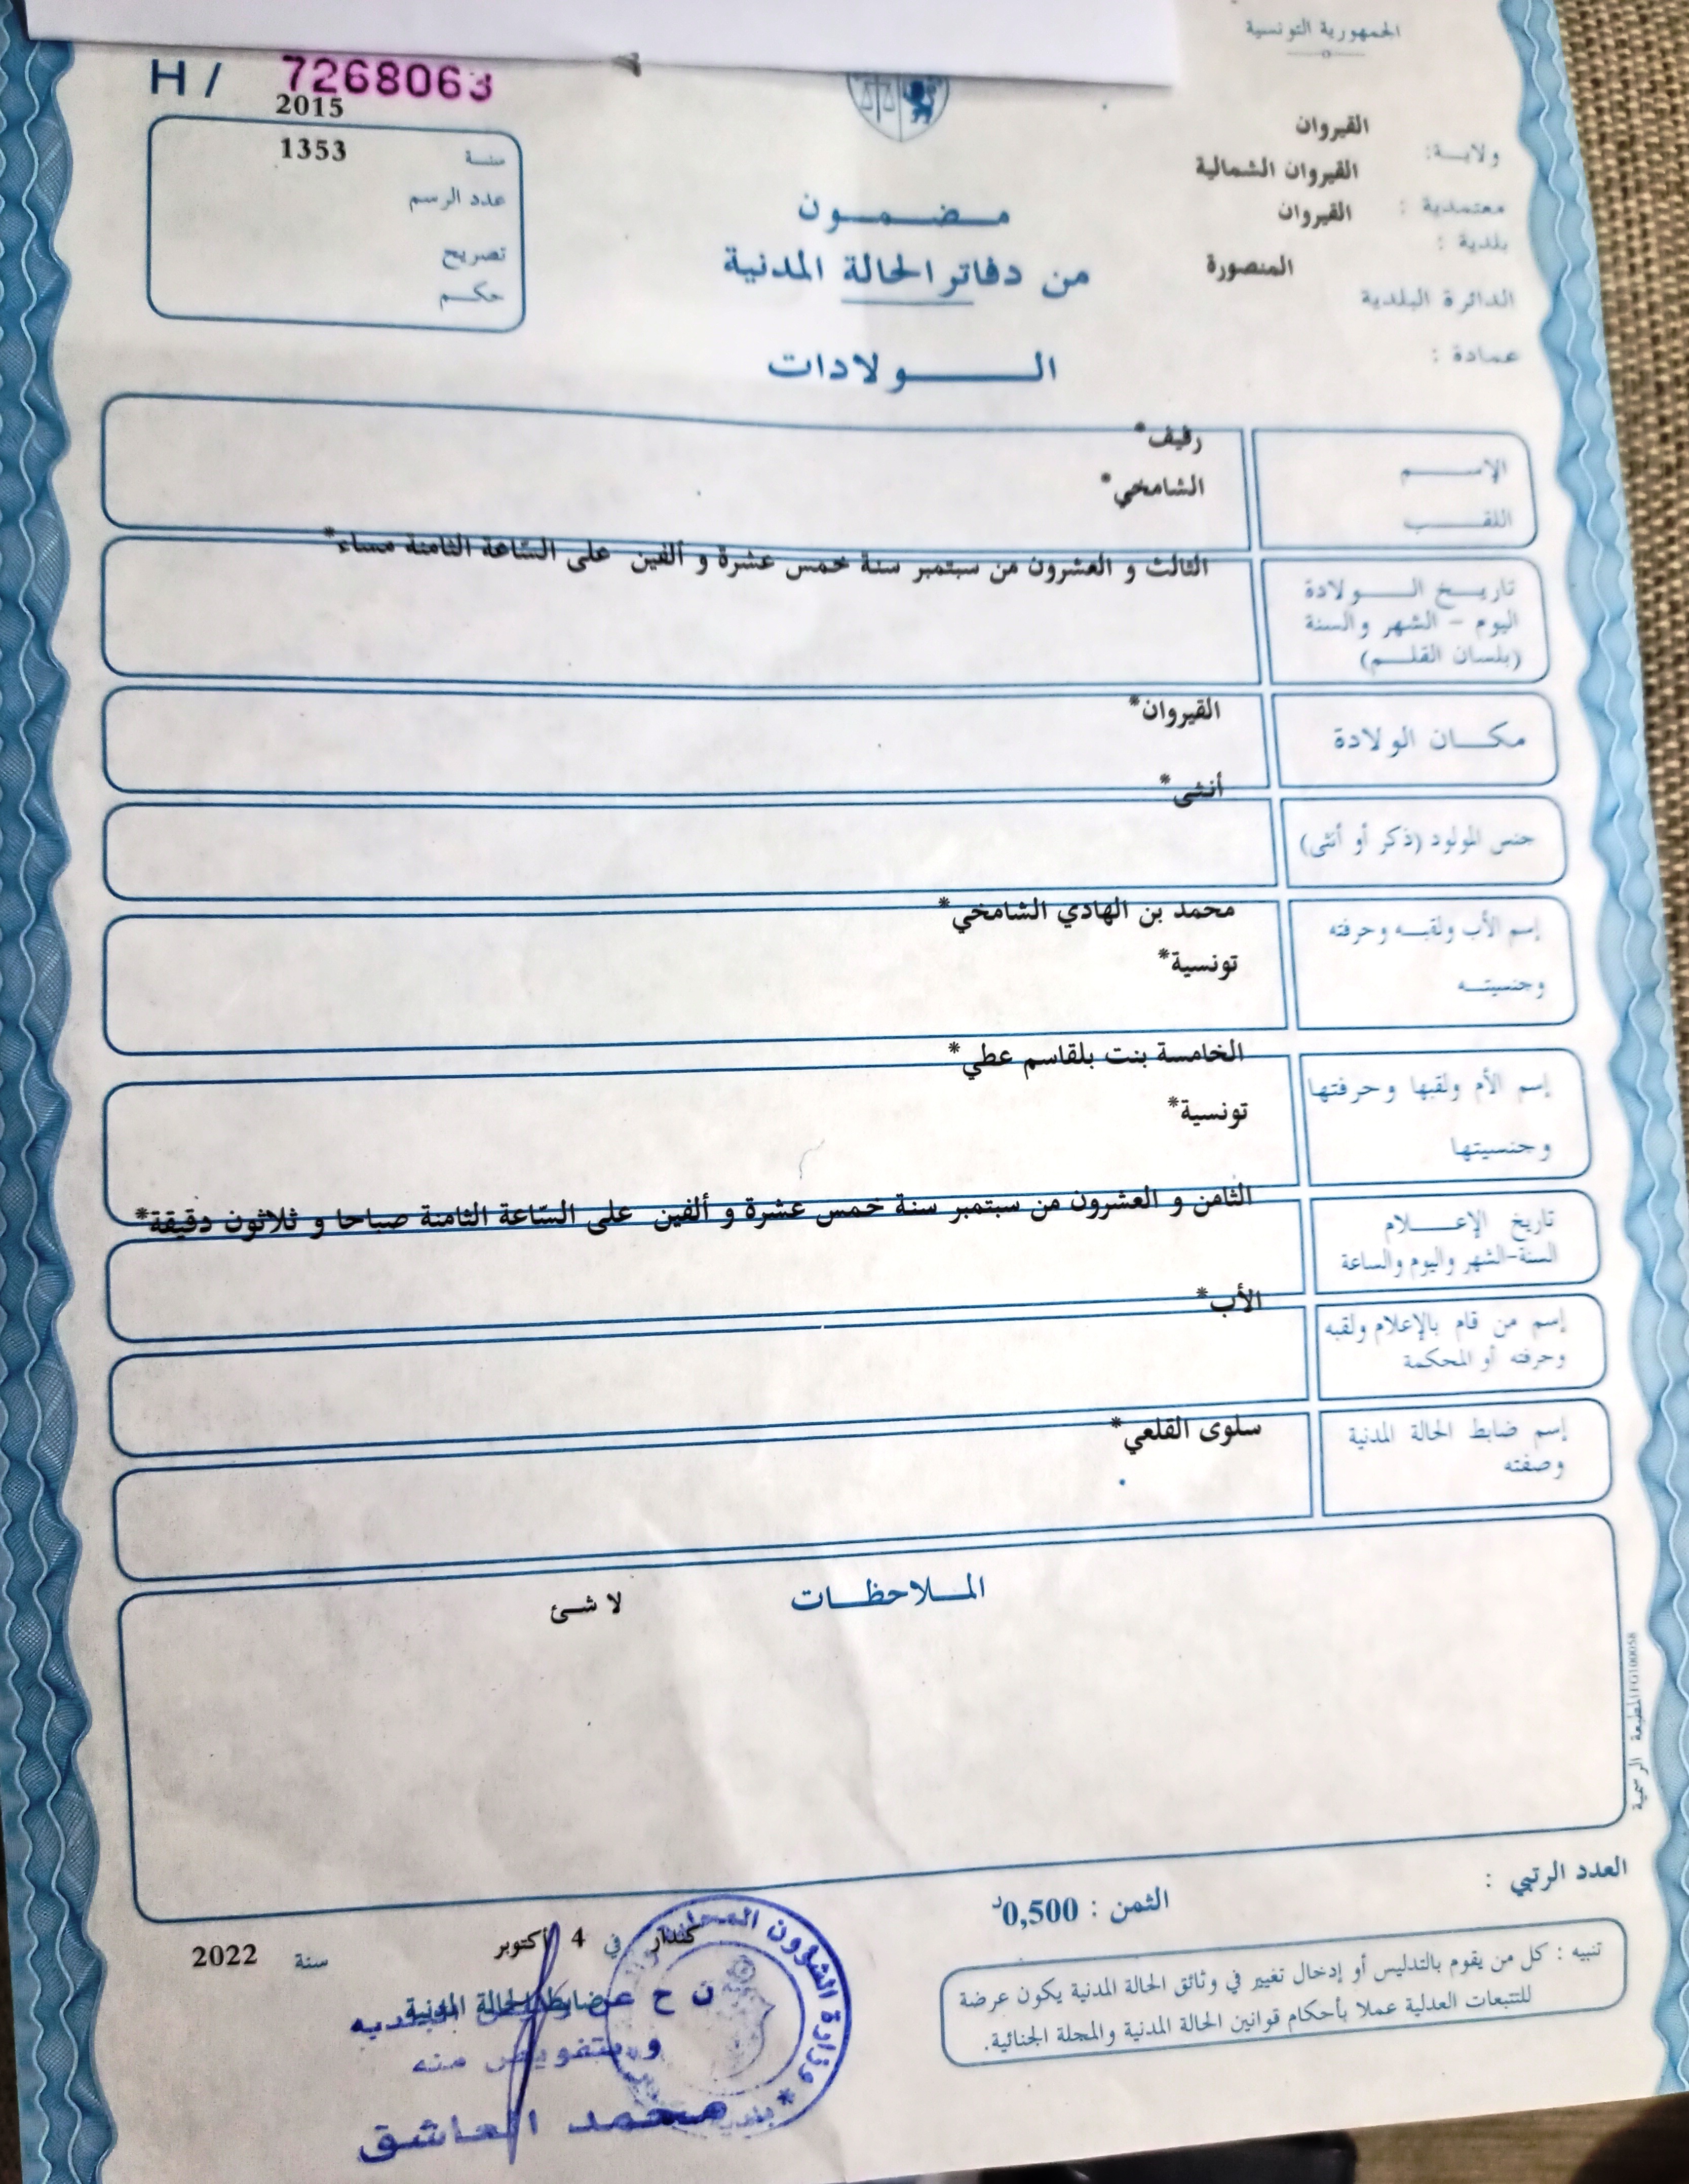 الجمهورية التونسية
H / 7268063
ولاية: القيروان
معتمدية : القيروان الشمالية
بلدية : القيروان
الدائرة البلدية المنصورة
عمادة :
2015
سنة 1353
عدد الرسم
تصريح
حكم
مضمون
من دفاتر الحالة المدنية
الولادات
الإسم رفيف*
اللقب الشامخي*
الثالث و العشرون من سبتمبر سنة خمس عشرة و ألفين على السّاعة الثامنة مساء*
تاريخ الولادة
اليوم - الشهر والسنة
(بلسان القلم)
مكان الولادة القيروان*
أنثى*
جنس المولود (ذكر أو أنثى)
إسم الأب ولقبه وحرفته محمد بن الهادي الشامخي*
وجنسيته تونسية*
إسم الأم ولقبها وحرفتها الخامسة بنت بلقاسم عطي*
وجنسيتها تونسية*
الثامن و العشرون من سبتمبر سنة خمس عشرة و ألفين على السّاعة الثامنة صباحا و ثلاثون دقيقة*
تاريخ الإعلام
السنة-الشهر واليوم والساعة
الأب*
إسم من قام بالإعلام ولقبه
وحرفته أو المحكمة
إسم ضابط الحالة المدنية سلوى القلعي*
وصفته
الملاحظات لا شئ
المطبعة الرسمية
العدد الرتبي :
الثمن : 0,500د
كندار في 4 أكتوبر سنة 2022
ضابط الحالة المدنية
ن ح عن
و بتفويض منه
محمد العاشق
وزارة الشؤون المحلية
تنبيه : كل من يقوم بالتدليس أو إدخال تغيير في وثائق الحالة المدنية يكون عرضة
للتتبعات العدلية عملا بأحكام قوانين الحالة المدنية والمجلة الجنائية.